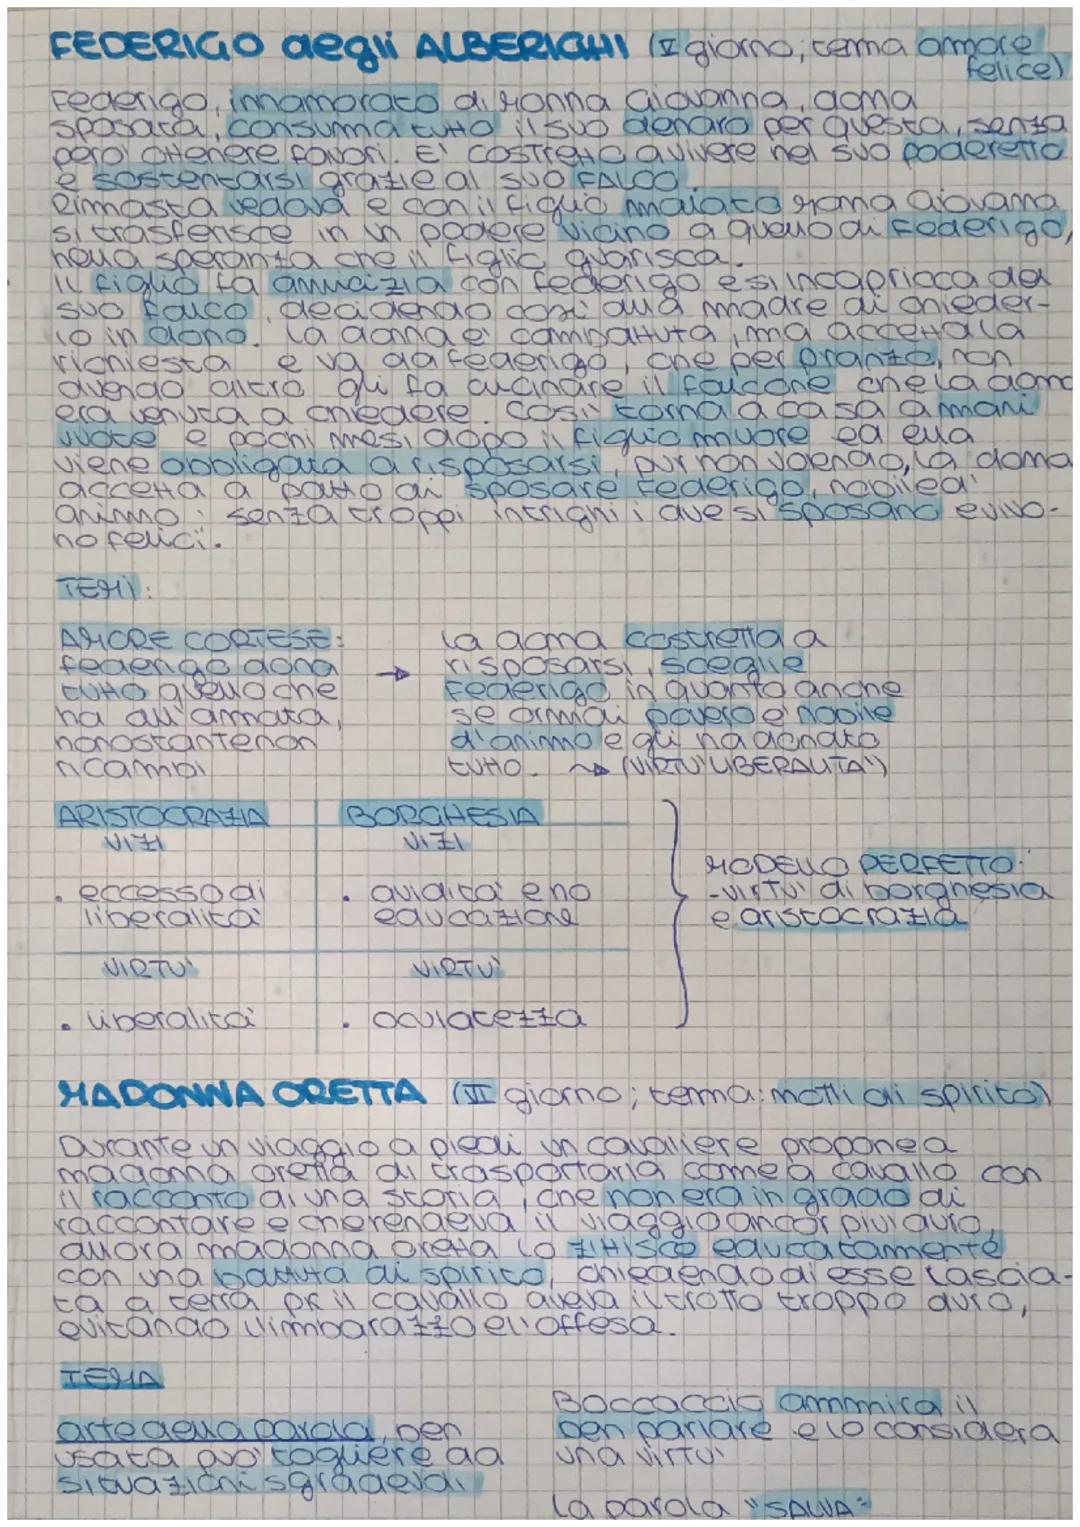 FEDERIGO degli ALBERIGHI (V giorno; tema amore
felice)
Federigo, innamorato di Monna Giovanna, donna
sposata, consuma tutto il suo denaro per questa, senza
pero' ottenere favori. E' costretto a vivere nel suo poderetto
e sostentarsi grazie al suo FALCO.
Rimasta vedova e con il figlio malato Monna Giovanna
si trasferisce in un podere vicino a quello di Federigo,
nella speranza che il figlio guarisca.
Il figlio fa amicizia con Federigo e si incapriccia del
suo falco, decidendo così alla madre di chieder-
lo in dono. La donna e' combattuta, ma accetta la
richiesta e va da Federigo, che per pranzo, non
avendo altro gli fa cucinare il falcone che la donna
era venuta a chiedere. Così torna a casa a mani
vuote e pochi mesi dopo il figlio muore ed ella
viene obbligata a risposarsi, pur non volendo, la donna
accetta a patto di sposare Federigo, nobile d'
animo: senza troppi intrighi i due si sposano e vivo-
no felici.
TEMI:
AMORE CORTESE:
federigo dona
tutto quello che
ha all'amata,
nonostante non
ricambi
→ la donna costretta a
risposarsi, sceglie
Federigo in quanto anche
se ormai povero e' nobile
d'animo e gli ha donato
tutto. → (VIRTU' LIBERALITA')
ARISTOCRAZIA BORGHESIA
VIZI VIZI
• eccesso di • avidita' e no
liberalita' educazione
VIRTU' VIRTU'
• liberalita' • oculatezza
MODELLO PERFETTO:
-virtu' di borghesia
e aristocrazia
MADONNA ORETTA (VI giorno; tema: motti di spirito)
Durante un viaggio a piedi un cavaliere propone a
madonna oretta di trasportarla come a cavallo con
il racconto di una storia, che non era in grado di
raccontare e che rendeva il viaggio ancor piu' duro,
allora madonna oretta lo zittisce educatamente
con una battuta di spirito, chiedendo di esse lascia-
ta a terra pk il cavallo aveva il trotto troppo duro,
evitando l'imbarazzo e l'offesa.
TEMA
arte della parola, ben
usata puo' togliere da
situazioni sgradevoli
Boccaccio ammira il
ben parlare e lo considera
una virtu'
la parola "SALVA"